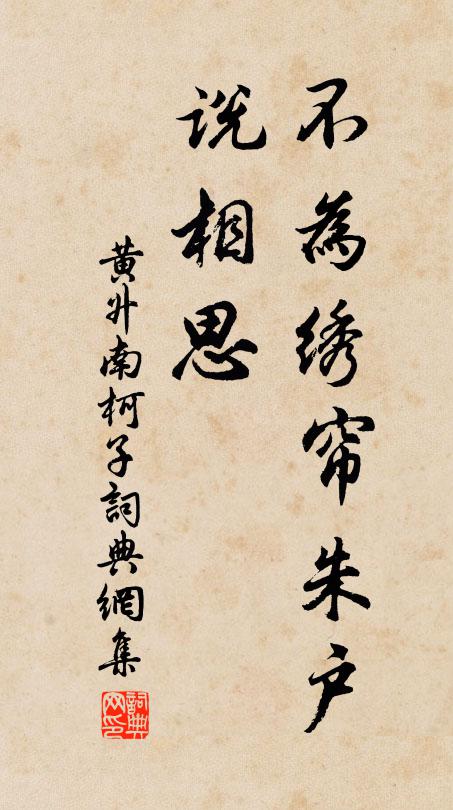 不為绣帘朱户
説相思
黄升南柯子詞典網集
詞典网印